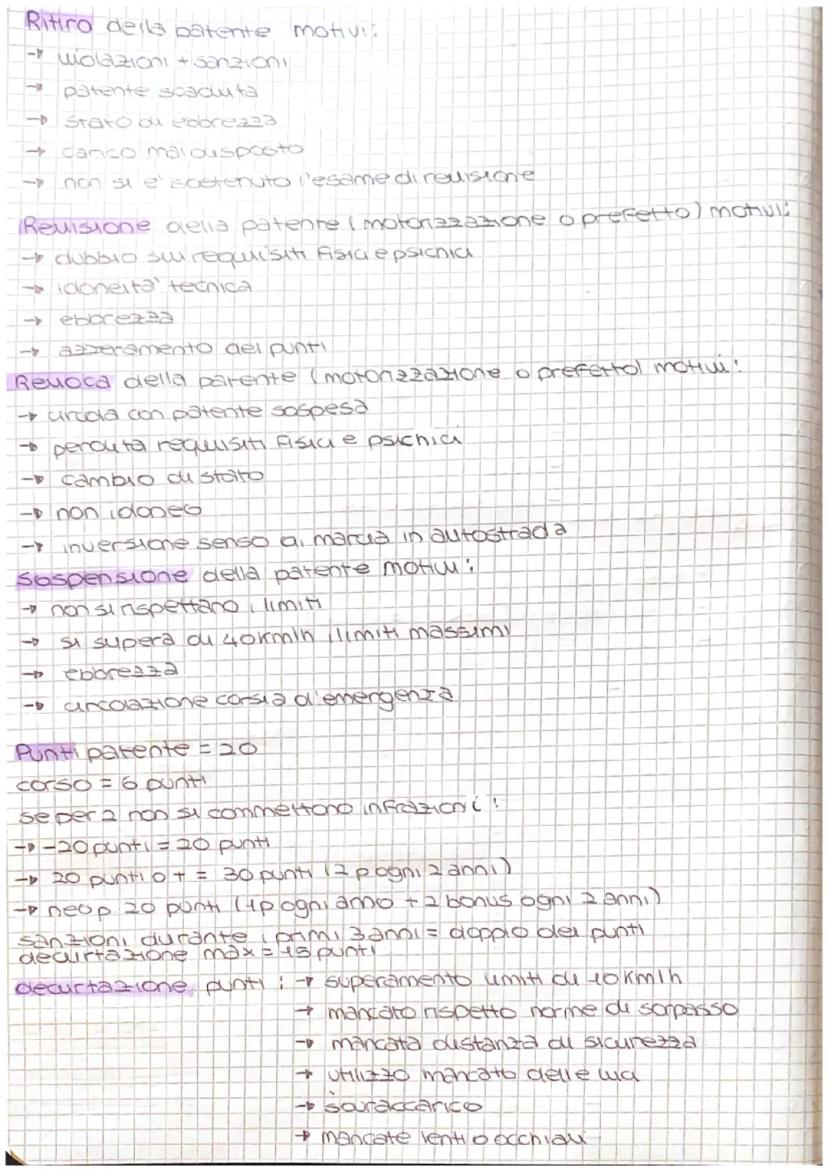 Ritiro della patente motivi:
→ violazioni + sanzioni
→ patente scaduta
→ stato di ebbrezza
→ carico mal disposto
→ non si è sostenuto l'esame di revisione
Revisione della patente (motorizzazione o prefetto) motivi:
→ dubbio sui requisiti fisici e psichici
→ idoneità tecnica
→ ebbrezza
→ azzeramento dei punti
Revoca della patente (motorizzazione o prefetto) motivi:
→ circola con patente sospesa
→ perduta requisiti fisici e psichici
→ cambio di stato
→ non idoneo
→ inversione senso di marcia in autostrada
Sospensione della patente motivi:
→ non si rispettano i limiti
→ si supera di 40km/h i limiti massimi
→ ebbrezza
→ circolazione corsia d'emergenza
Punti patente = 20
corso = 6 punti
se per 2 non si commettono infrazioni:
→ -20 punti = 20 punti
→ 20 punti o + = 30 punti (2 p ogni 2 anni)
→ neop. 20 punti (1p ogni anno + 2 bonus ogni 2 anni)
sanzioni durante i primi 3 anni = doppio dei punti
decurtazione max = 15 punti
decurtazione punti: → superamento limiti di 10km/h
→ mancato rispetto norme di sorpasso
→ mancata distanza di sicurezza
→ utilizzo mancato delle luci
→ sovraccarico
→ mancate lenti o occhiali